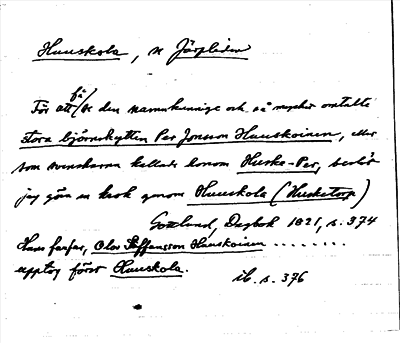 Huuskola, n Järpliden
För att få se den namnkunnige och så mycket omtalte
stora björnskytten Per Jonsson Huuskoinen, eller
som svenskarna kallade honom Huske-Per, beslöt
jag göra en krok genom Huuskola (Husketorp)
Gottlund, Dagbok 1821, s. 374
Hans farfar, Olov Staffansson Huuskoinen ........
upptog först Huuskola.
ib. s. 376